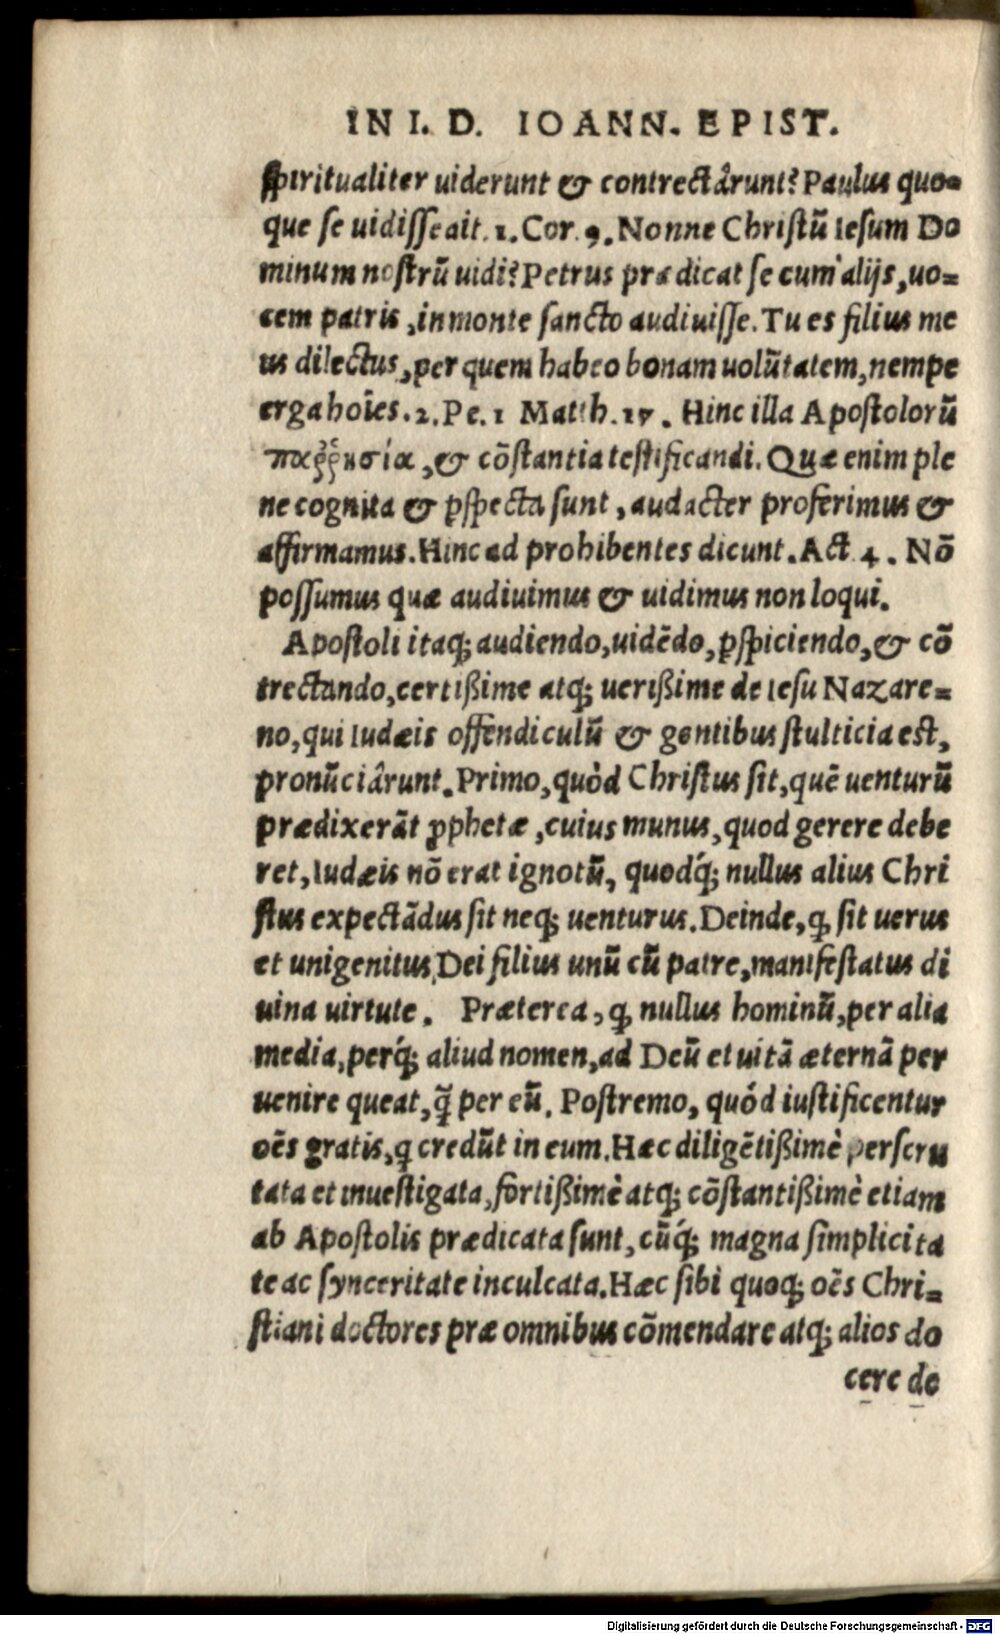 IN I. D. IOANN. EPIST.
spiritualiter uiderunt & contrectârunt? Paulus quo-
que se uidisse ait. 1. Cor. 9. Nonne Christũ Iesum Do
minum nostrũ uidi? Petrus prædicat se cum alijs, uo-
cem patris, in monte sancto audiuisse. Tu es filius me
us dilectus, per quem habeo bonam uolũtatem, nempe
erga hoĩes. 2. Pe. 1 Matth. 17. Hinc illa Apostolorũ
παῤῥησία, & cõstantia testificandi. Quæ enim ple
ne cognita & ꝑspecta sunt, audacter proferimus &
affirmamus. Hinc ad prohibentes dicunt. Act. 4. Nõ
possumus quæ audiuimus & uidimus non loqui.
Apostoli itaq; audiendo, uidẽdo, ꝑspiciendo, & cõ
trectando, certißime atq; uerißime de Iesu Nazare-
no, qui Iudæis offendiculũ & gentibus stulticia est,
pronũciârunt. Primo, quòd Christus sit, quẽ uenturũ
prædixerãt ꝓphetæ, cuius munus, quod gerere debe
ret, Iudæis nõ erat ignotũ, quodq́; nullus alius Chri
stus expectãdus sit neq; uenturus. Deinde, ꝙ sit uerus
et unigenitus Dei filius unũ cũ patre, manifestatus di
uina uirtute. Præterea, ꝙ nullus hominũ, per alia
media, perq́; aliud nomen, ad Deũ et uitã æternã per
uenire queat, q̃ per eũ. Postremo, quòd iustificentur
oẽs gratis, q credũt in eum. Hæc diligẽtißimè perscru
tata et inuestigata, fortißimè atq; cõstantißimè etiam
ab Apostolis prædicata sunt, cũq́; magna simplicita
te ac synceritate inculcata. Hæc sibi quoq; oẽs Chri-
stiani doctores præ omnibus cõmendare atq; alios do
cere de
Digitalisierung gefördert durch die Deutsche Forschungsgemeinschaft - DFG